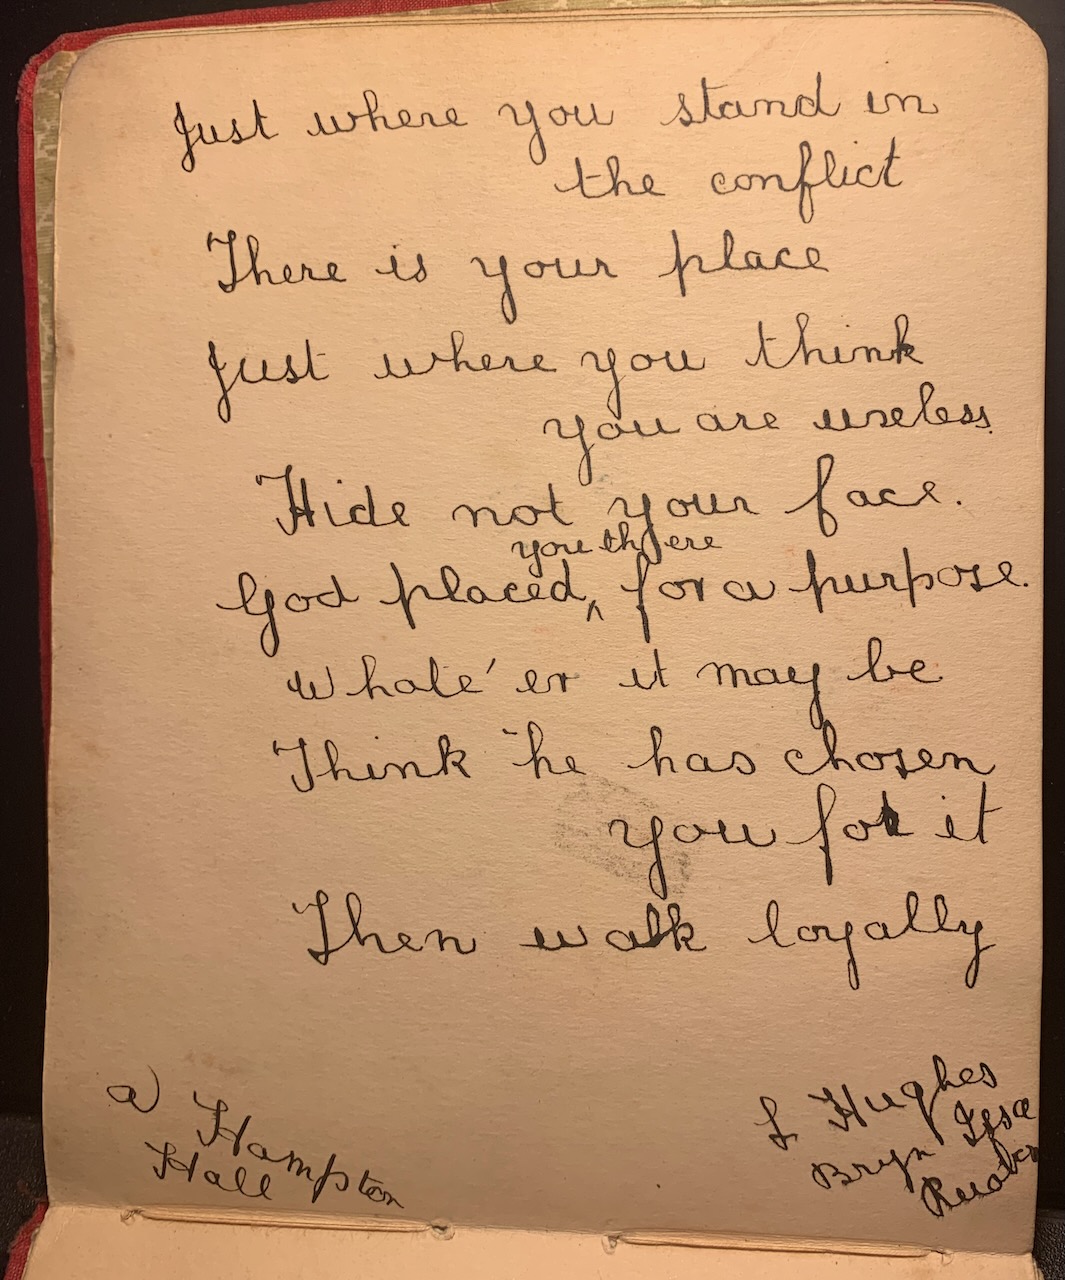 Just where you stand in
the conflict
There is your place
Just where you think
you are useless.
Hide not your face.
you there
God placed, ^ for a purpose.
Whate'er it may be
Think he has chosen
you for it
Then walk loyally
a) Hampton
Hall
L Hughes
Bryn